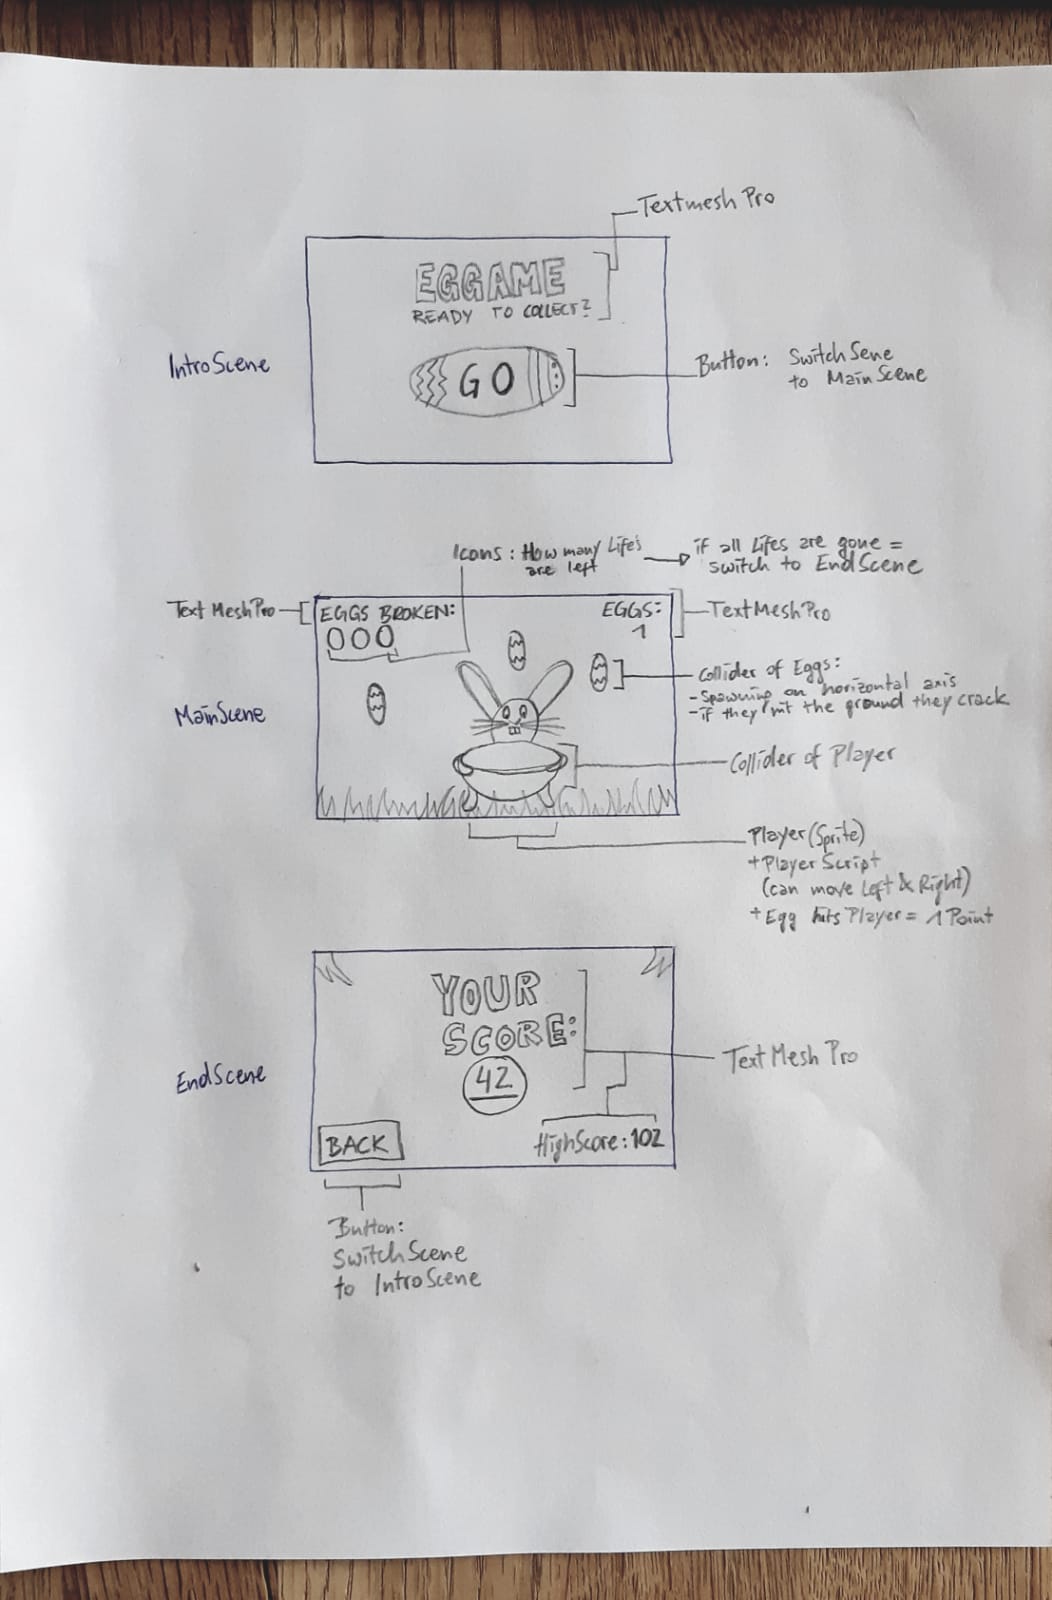 Textmesh Pro
EGGAME
READY TO COLLECT?
IntroScene
GO
Button: SwitchSene
to MainScene
Icons: How many Life's
are left
if all Lifes are gone =
switch to EndScene
Text MeshPro
EGGS BROKEN:
EGGS:
1
TextMeshPro
MainScene
Collider of Eggs:
- Spawning on horizontal axis
- if they hit the ground they crack
Collider of Player
Player (Sprite)
+ Player Script
(can move Left & Right)
+ Egg hits Player = 1 Point
YOUR
SCORE:
42
EndScene
TextMesh Pro
BACK
HighScore: 102
Button:
SwitchScene
to IntroScene